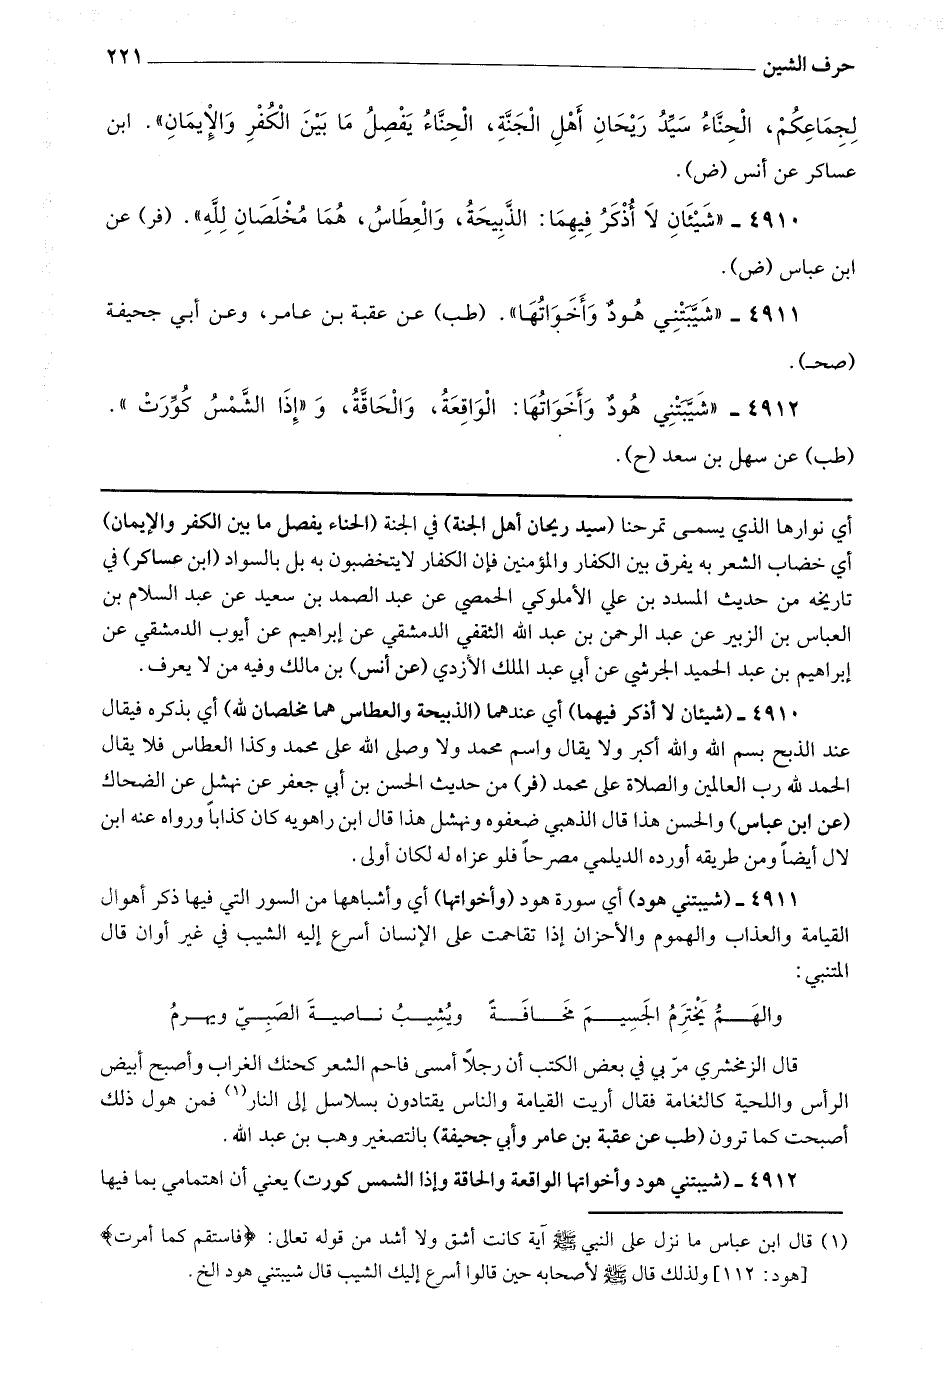 حرف الشين ٢٢١
لِجِمَاعِكُمْ، الْحِنَّاءُ سَيِّدُ رَيْحَانِ أَهْلِ الْجَنَّةِ، الْحِنَّاءُ يَفْصِلُ مَا بَيْنَ الْكُفْرِ وَالْإِيمَانِ». ابن
عساكر عن أنس (ض).
٤٩١٠ ـ «شَيْئَانِ لَا أُذْكَرُ فِيهِمَا: الذَّبِيحَةُ، وَالْعِطَاسُ، هُمَا مُخْلَصَانِ لِلَّهِ». (فر) عن
ابن عباس (ض).
٤٩١١ ـ «شَيَّبَتْنِي هُودٌ وَأَخَوَاتُهَا». (طب) عن عقبة بن عامر، وعن أبي جحيفة
(صحـ).
٤٩١٢ ـ «شَيَّبَتْنِي هُودٌ وَأَخَوَاتُهَا: الْوَاقِعَةُ، وَالْحَاقَّةُ، وَ «إِذَا الشَّمْسُ كُوِّرَتْ ».
(طب) عن سهل بن سعد (ح).
أي نوارها الذي يسمى تمرحنا (سيد ريحان أهل الجنة) في الجنة (الحناء يفصل ما بين الكفر والإيمان)
أي خضاب الشعر به يفرق بين الكفار والمؤمنين فإن الكفار لايتخضبون به بل بالسواد (ابن عساكر) في
تاريخه من حديث المسدد بن علي الأملوكي الحمصي عن عبد الصمد بن سعيد عن عبد السلام بن
العباس بن الزبير عن عبد الرحمن بن عبد الله الثقفي الدمشقي عن إبراهيم عن أيوب الدمشقي عن
إبراهيم بن عبد الحميد الجرشي عن أبي عبد الملك الأزدي (عن أنس) بن مالك وفيه من لا يعرف.
٤٩١٠ ـ (شيئان لا أذكر فيهما) أي عندهما (الذبيحة والعطاس هما مخلصان لله) أي بذكره فيقال
عند الذبح بسم الله والله أكبر ولا يقال واسم محمد ولا وصلى الله على محمد وكذا العطاس فلا يقال
الحمد لله رب العالمين والصلاة على محمد (فر) من حديث الحسن بن أبي جعفر عن نهشل عن الضحاك
(عن ابن عباس) والحسن هذا قال الذهبي ضعفوه ونهشل هذا قال ابن راهويه كان كذاباً ورواه عنه ابن
لال أيضاً ومن طريقه أورده الديلمي مصرحاً فلو عزاه له لكان أولى.
٤٩١١ ـ (شيبتني هود) أي سورة هود (وأخواتها) أي وأشباهها من السور التي فيها ذكر أهوال
القيامة والعذاب والهموم والأحزان إذا تقاحمت على الإنسان أسرع إليه الشيب في غير أوان قال
المتنبي:
والهَمُّ يَخْتَرِمُ الجَسِيمَ مَخَافَةً ويُشِيبُ ناصيةَ الصَبِيّ ويهرمُ
قال الزمخشري مرّ بي في بعض الكتب أن رجلاً أمسى فاحم الشعر كحنك الغراب وأصبح أبيض
الرأس واللحية كالثغامة فقال أريت القيامة والناس يقتادون بسلاسل إلى النار(١) فمن هول ذلك
أصبحت كما ترون (طب عن عقبة بن عامر وأبي جحيفة) بالتصغير وهب بن عبد الله.
٤٩١٢ ـ (شيبتني هود وأخواتها الواقعة والحاقة وإذا الشمس كورت) يعني أن اهتمامي بما فيها
(١) قال ابن عباس ما نزل على النبي ﷺ آية كانت أشق ولا أشد من قوله تعالى: ﴿فاستقم كما أمرت﴾
[هود: ١١٢] ولذلك قال ﷺ لأصحابه حين قالوا أسرع إليك الشيب قال شيبتني هود الخ.